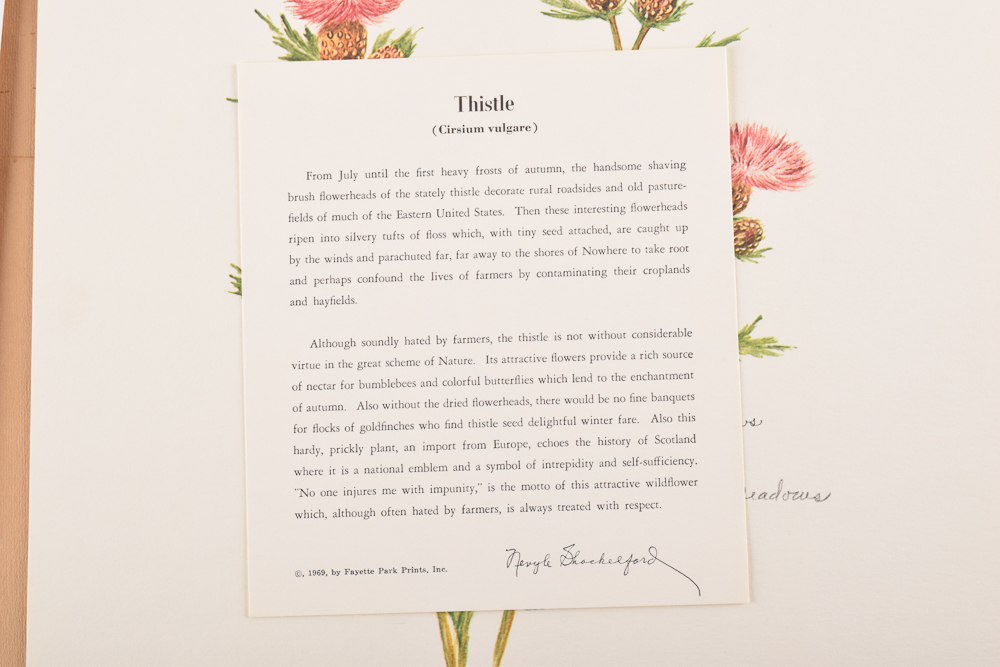 Thistle
(Cirsium vulgare)
From July until the first heavy frosts of autumn, the handsome shaving
brush flowerheads of the stately thistle decorate rural roadsides and old pasture-
fields of much of the Eastern United States. Then these interesting flowerheads
ripen into silvery tufts of floss which, with tiny seed attached, are caught up
by the winds and parachuted far, far away to the shores of Nowhere to take root
and perhaps confound the lives of farmers by contaminating their croplands
and hayfields.
Although soundly hated by farmers, the thistle is not without considerable
virtue in the great scheme of Nature. Its attractive flowers provide a rich source
of nectar for bumblebees and colorful butterflies which lend to the enchantment
of autumn. Also without the dried flowerheads, there would be no fine banquets
for flocks of goldfinches who find thistle seed delightful winter fare. Also this
hardy, prickly plant, an import from Europe, echoes the history of Scotland
where it is a national emblem and a symbol of intrepidity and self-sufficiency.
"No one injures me with impunity," is the motto of this attractive wildflower
which, although often hated by farmers, is always treated with respect.
©, 1969, by Fayette Park Prints, Inc.
Nevyle Shackelford
eadows